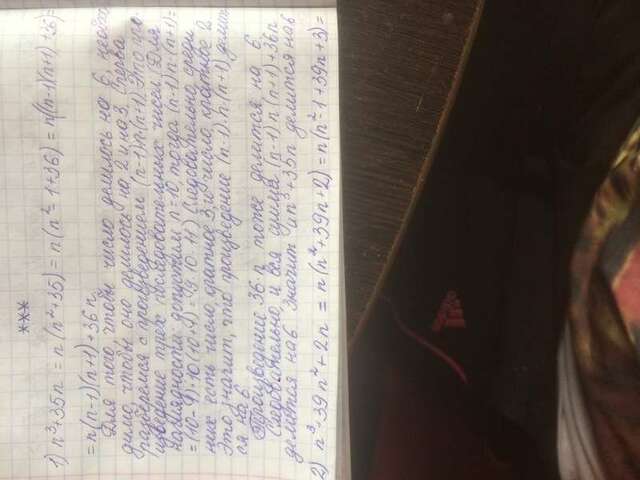 ***
1) n³+35n = n(n²+35) = n(n²-1+36) = n((n-1)(n+1)+36)=
= n(n-1)(n+1)+36n.
Для того чтобы число делилось на 6,
димо, чтобы оно делилось на 2 и на 3.
разберемся с произведением (n-1)n(n+1). Это про
изведение трех последовательных чисел. Для
наглядности допустим n=10 тогда (n-1)·n·(n+1)=
=(10-1)·10(10+1)=9·10·11)
них есть число, кратное 3, и число, кратное 2
это значит, что произведение (n-1)·n(n+1) делит
ся на 6
Произведение 36·n тоже делится на 6.
Следовательно и вся сумма (n-1)n(n+1)+36n
делится на 6 значит и n³+35n делится на 6
2) n³+39n²+2n = n(n²+39n+2) = n(n²-1+39n+3)=
adidas